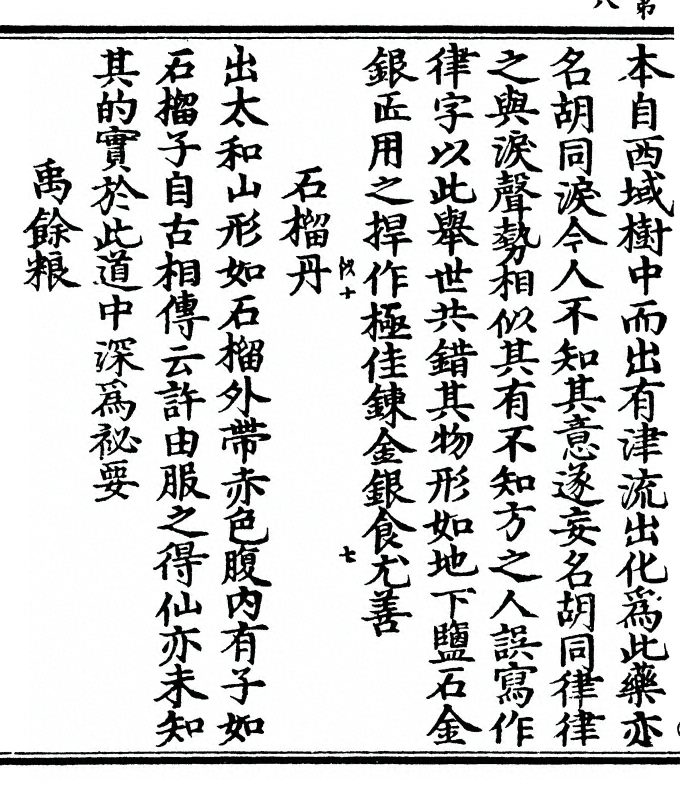 本自西域樹中而出有津流出化爲此藥亦
名胡同淚今人不知其意遂妄名胡同律律
之與淚聲勢相似其有不知方之人誤寫作
律字以此舉世共錯其物形如地下鹽石金
銀匠用之捍作極佳鍊金銀食尤善
似十
七
石榴丹
出太和山形如石榴外帶赤色腹內有子如
石榴子自古相傳云許由服之得仙亦未知
其的實於此道中深爲祕要
禹餘粮